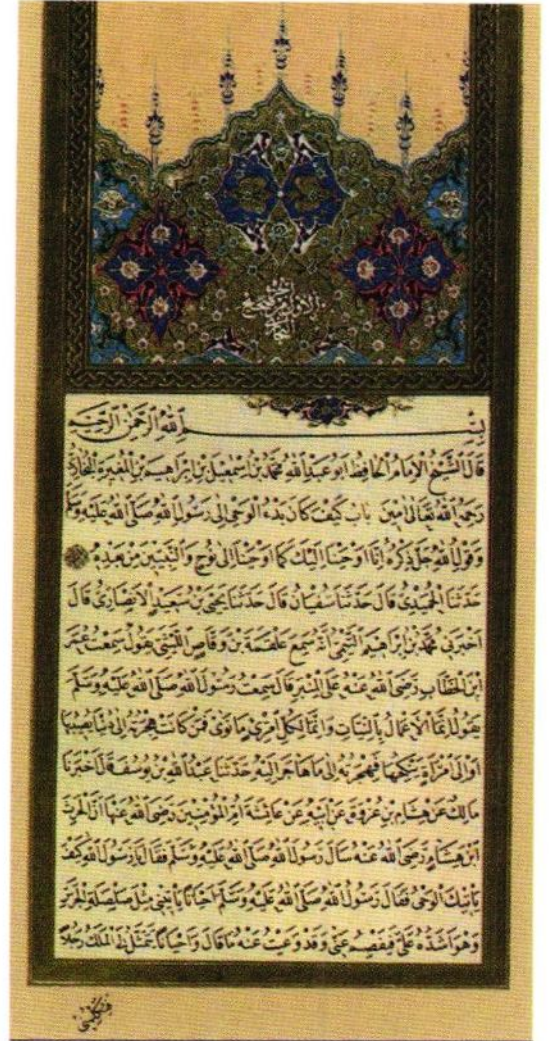 الاول من صحيح
بسم الله الرحمن الرحيم
قَالَ الشَّيْخُ الْاِمَامُ الْحَافِظُ اَبُو عَبْدِ اللّٰهِ مُحَمَّدُ بْنُ اِسْمٰعِيلَ بْنِ اِبْرَاهِيمَ بْنِ الْمُغِيرَةِ الْبُخَارِيُّ
رَحِمَهُ اللّٰهُ تَعَالٰى اٰمِينَ بَابُ كَيْفَ كَانَ بَدْءُ الْوَحْىِ اِلٰى رَسُولِ اللّٰهِ صَلَّى اللّٰهُ عَلَيْهِ وَسَلَّمَ
وَقَوْلُ اللّٰهِ جَلَّ ذِكْرُهُ اِنَّا اَوْحَيْنَا اِلَيْكَ كَمَا اَوْحَيْنَا اِلٰى نُوحٍ وَالنَّبِيِّينَ مِنْ بَعْدِهِ
حَدَّثَنَا الْحُمَيْدِىُّ قَالَ حَدَّثَنَا سُفْيَانُ قَالَ حَدَّثَنَا يَحْيَى بْنُ سَعِيدٍ الْاَنْصَارِىُّ قَالَ
اَخْبَرَنِى مُحَمَّدُ بْنُ اِبْرَاهِيمَ التَّيْمِىُّ اَنَّهُ سَمِعَ عَلْقَمَةَ بْنَ وَقَّاصٍ اللَّيْثِىَّ يَقُولُ سَمِعْتُ عُمَرَ
ابْنَ الْخَطَّابِ رَضِىَ اللّٰهُ عَنْهُ عَلَى الْمِنْبَرِ قَالَ سَمِعْتُ رَسُولَ اللّٰهِ صَلَّى اللّٰهُ عَلَيْهِ وَسَلَّمَ
يَقُولُ اِنَّمَا الْاَعْمَالُ بِالنِّيَّاتِ وَاِنَّمَا لِكُلِّ امْرِئٍ مَا نَوٰى فَمَنْ كَانَتْ هِجْرَتُهُ اِلٰى دُنْيَا يُصِيبُهَا
اَوْ اِلَى امْرَاَةٍ يَنْكِحُهَا فَهِجْرَتُهُ اِلٰى مَا هَاجَرَ اِلَيْهِ حَدَّثَنَا عَبْدُ اللّٰهِ بْنُ يُوسُفَ قَالَ اَخْبَرَنَا
مَالِكٌ عَنْ هِشَامِ بْنِ عُرْوَةَ عَنْ اَبِيهِ عَنْ عَائِشَةَ اُمِّ الْمُؤْمِنِينَ رَضِىَ اللّٰهُ عَنْهَا اَنَّ الْحٰرِثَ
ابْنَ هِشَامٍ رَضِىَ اللّٰهُ عَنْهُ سَاَلَ رَسُولَ اللّٰهِ صَلَّى اللّٰهُ عَلَيْهِ وَسَلَّمَ فَقَالَ يَا رَسُولَ اللّٰهِ كَيْفَ
يَأْتِيكَ الْوَحْىُ فَقَالَ رَسُولُ اللّٰهِ صَلَّى اللّٰهُ عَلَيْهِ وَسَلَّمَ اَحْيَانًا يَأْتِينِى مِثْلَ صَلْصَلَةِ الْجَرَسِ
وَهُوَ اَشَدُّهُ عَلَىَّ فَيُفْصَمُ عَنِّى وَقَدْ وَعَيْتُ عَنْهُ مَا قَالَ وَاَحْيَانًا يَتَمَثَّلُ لِىَ الْمَلَكُ رَجُلًا
فَيُكَلِّمُنِى